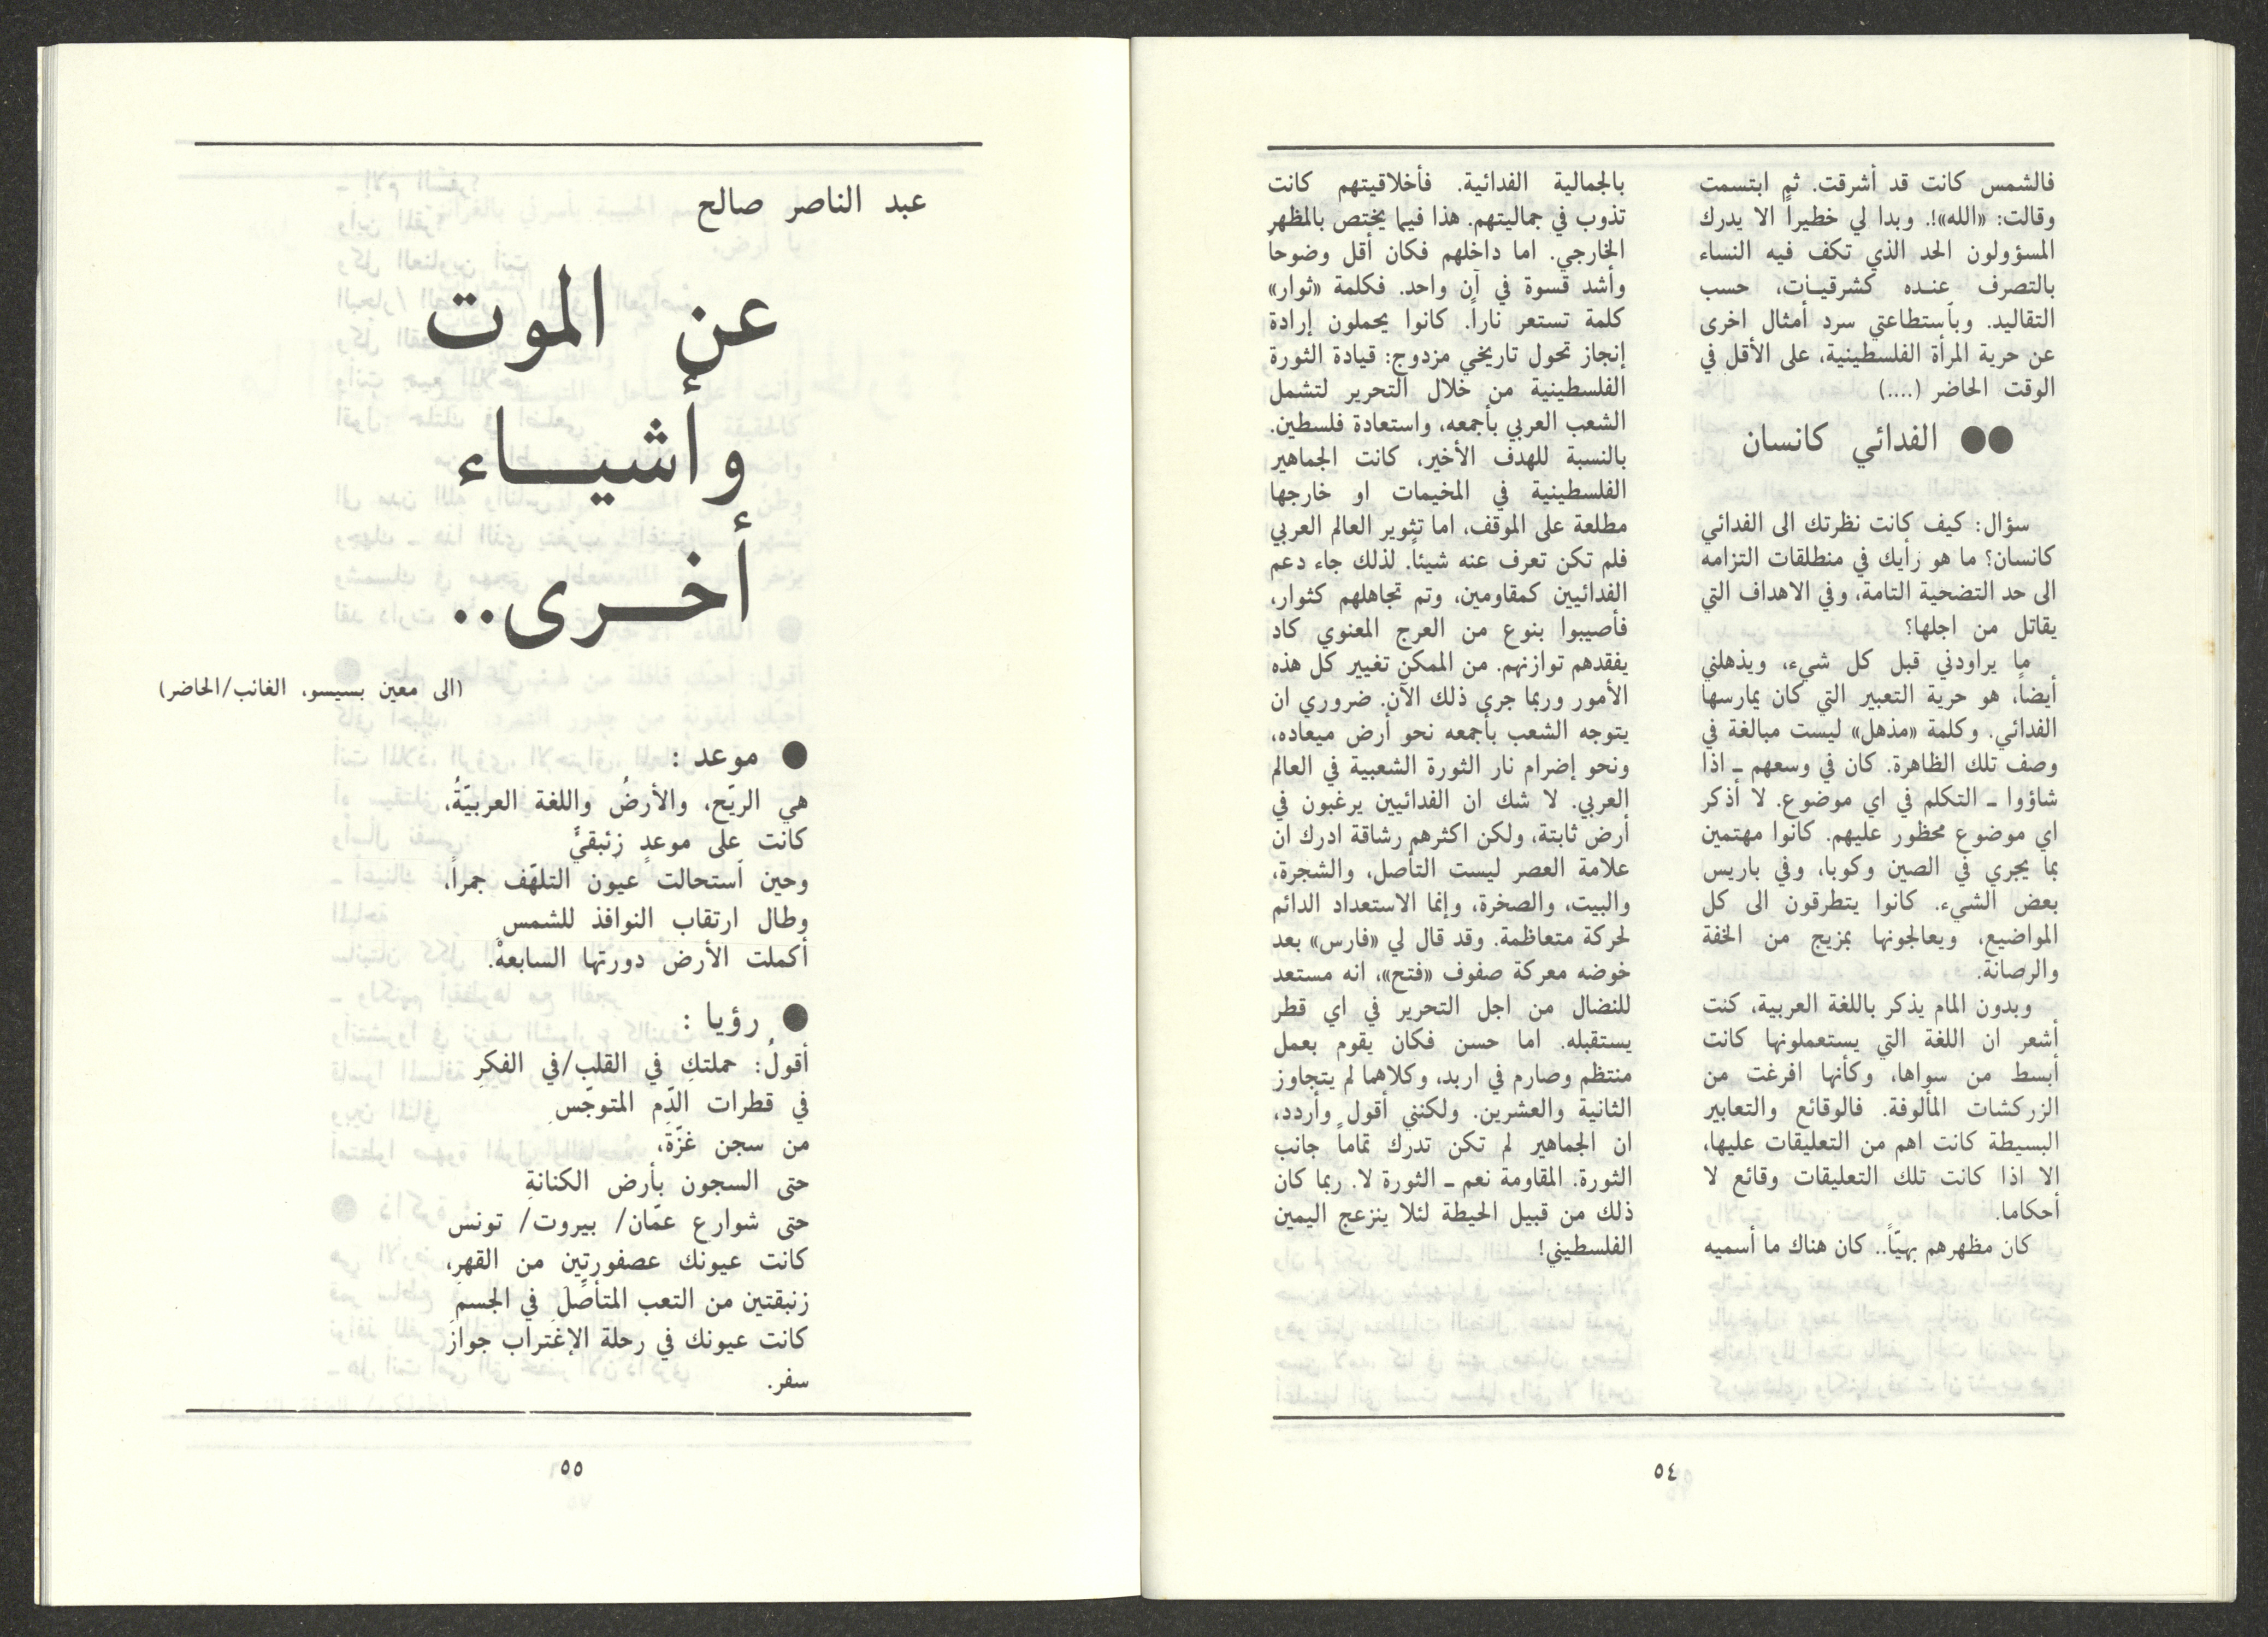 فالشمس كانت قد أشرقت. ثم ابتسمت
وقالت: «الله»!. وبدا لي خطيراً الا يدرك
المسؤولون الحد الذي تكف فيه النساء
بالتصرف عنده كشرقيات، حسب
التقاليد. وبأستطاعتي سرد أمثال اخرى
عن حرية المرأة الفلسطينية، على الأقل في
الوقت الحاضر (....)
●● الفدائي كانسان
سؤال: كيف كانت نظرتك الى الفدائي
كانسان؟ ما هو رأيك في منطلقات التزامه
الى حد التضحية التامة، وفي الاهداف التي
يقاتل من اجلها؟
ما يراودني قبل كل شيء، ويذهلني
أيضاً، هو حرية التعبير التي كان يمارسها
الفدائي. وكلمة «مذهل» ليست مبالغة في
وصف تلك الظاهرة. كان في وسعهم ـ اذا
شاؤوا ـ التكلم في اي موضوع. لا أذكر
اي موضوع محظور عليهم. كانوا مهتمين
بما يجري في الصين وكوبا، وفي باريس
بعض الشيء. كانوا يتطرقون الى كل
المواضيع، ويعالجونها بمزيج من الخفة
والرصانة.
وبدون المام يذكر باللغة العربية، كنت
أشعر ان اللغة التي يستعملونها كانت
أبسط من سواها، وكأنها افرغت من
الزركشات المألوفة. فالوقائع والتعابير
البسيطة كانت اهم من التعليقات عليها،
الا اذا كانت تلك التعليقات وقائع لا
أحكاما.
كان مظهرهم بهيّاً.. كان هناك ما أسميه
بالجمالية الفدائية. فأخلاقيتهم كانت
تذوب في جماليتهم. هذا فيما يختص بالمظهر
الخارجي. اما داخلهم فكان أقل وضوحاً
وأشد قسوة في آن واحد. فكلمة «ثوار»
كلمة تستعر ناراً. كانوا يحملون إرادة
إنجاز تحول تاريخي مزدوج: قيادة الثورة
الفلسطينية من خلال التحرير لتشمل
الشعب العربي بأجمعه، واستعادة فلسطين.
بالنسبة للهدف الأخير، كانت الجماهير
الفلسطينية في المخيمات او خارجها
مطلعة على الموقف، اما تثوير العالم العربي
فلم تكن تعرف عنه شيئاً. لذلك جاء دعم
الفدائيين كمقاومين، وتم تجاهلهم كثوار،
فأصيبوا بنوع من العرج المعنوي كاد
يفقدهم توازنهم. من الممكن تغيير كل هذه
الأمور وربما جرى ذلك الآن. ضروري ان
يتوجه الشعب بأجمعه نحو أرض ميعاده،
ونحو إضرام نار الثورة الشعبية في العالم
العربي. لا شك ان الفدائيين يرغبون في
أرض ثابتة، ولكن اكثرهم رشاقة ادرك ان
علامة العصر ليست التأصل، والشجرة،
والبيت، والصخرة، وإنما الاستعداد الدائم
لحركة متعاظمة. وقد قال لي «فارس» بعد
خوضه معركة صفوف «فتح»، انه مستعد
للنضال من اجل التحرير في اي قطر
يستقبله. اما حسن فكان يقوم بعمل
منتظم وصارم في اربد، وكلاهما لم يتجاوز
الثانية والعشرين. ولكنني أقول وأردد،
ان الجماهير لم تكن تدرك تماماً جانب
الثورة. المقاومة نعم ـ الثورة لا. ربما كان
ذلك من قبيل الحيطة لئلا ينزعج اليمين
الفلسطيني!
٥٤
عبد الناصر صالح
عن الموت
وأشيـاء
أخـرى..
(الى معين بسيسو، الغائب/الحاضر)
● موعد :
هي الريّح، والأرضُ واللغة العربيّةُ،
كانت على موعدٍ زئبقيٍّ
وحين آستحالت عيون التلهّف جمراً،
وطال ارتقاب النوافذ للشمسِ
أكملت الأرض دورتها السابعهْ.
● رؤيا :
أقولُ: حملتكِ في القلبِ/في الفكرِ
في قطرات الدّم المتوجّسِ
من سجن غزّةَ،
حتى السجون بأرض الكنانةِ
حتى شوارع عمّان/ بيروت/ تونس
كانت عيونك عصفورتين من القهرِ،
زنبقتين من التعب المتأصّلَ في الجسمِ
كانت عيونك في رحلة الإغتراب جوازَ
سفر.
٥٥